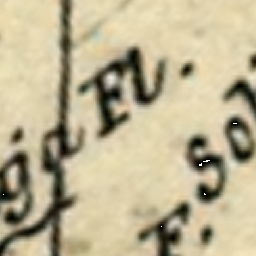 ga Fl.
F. Sol